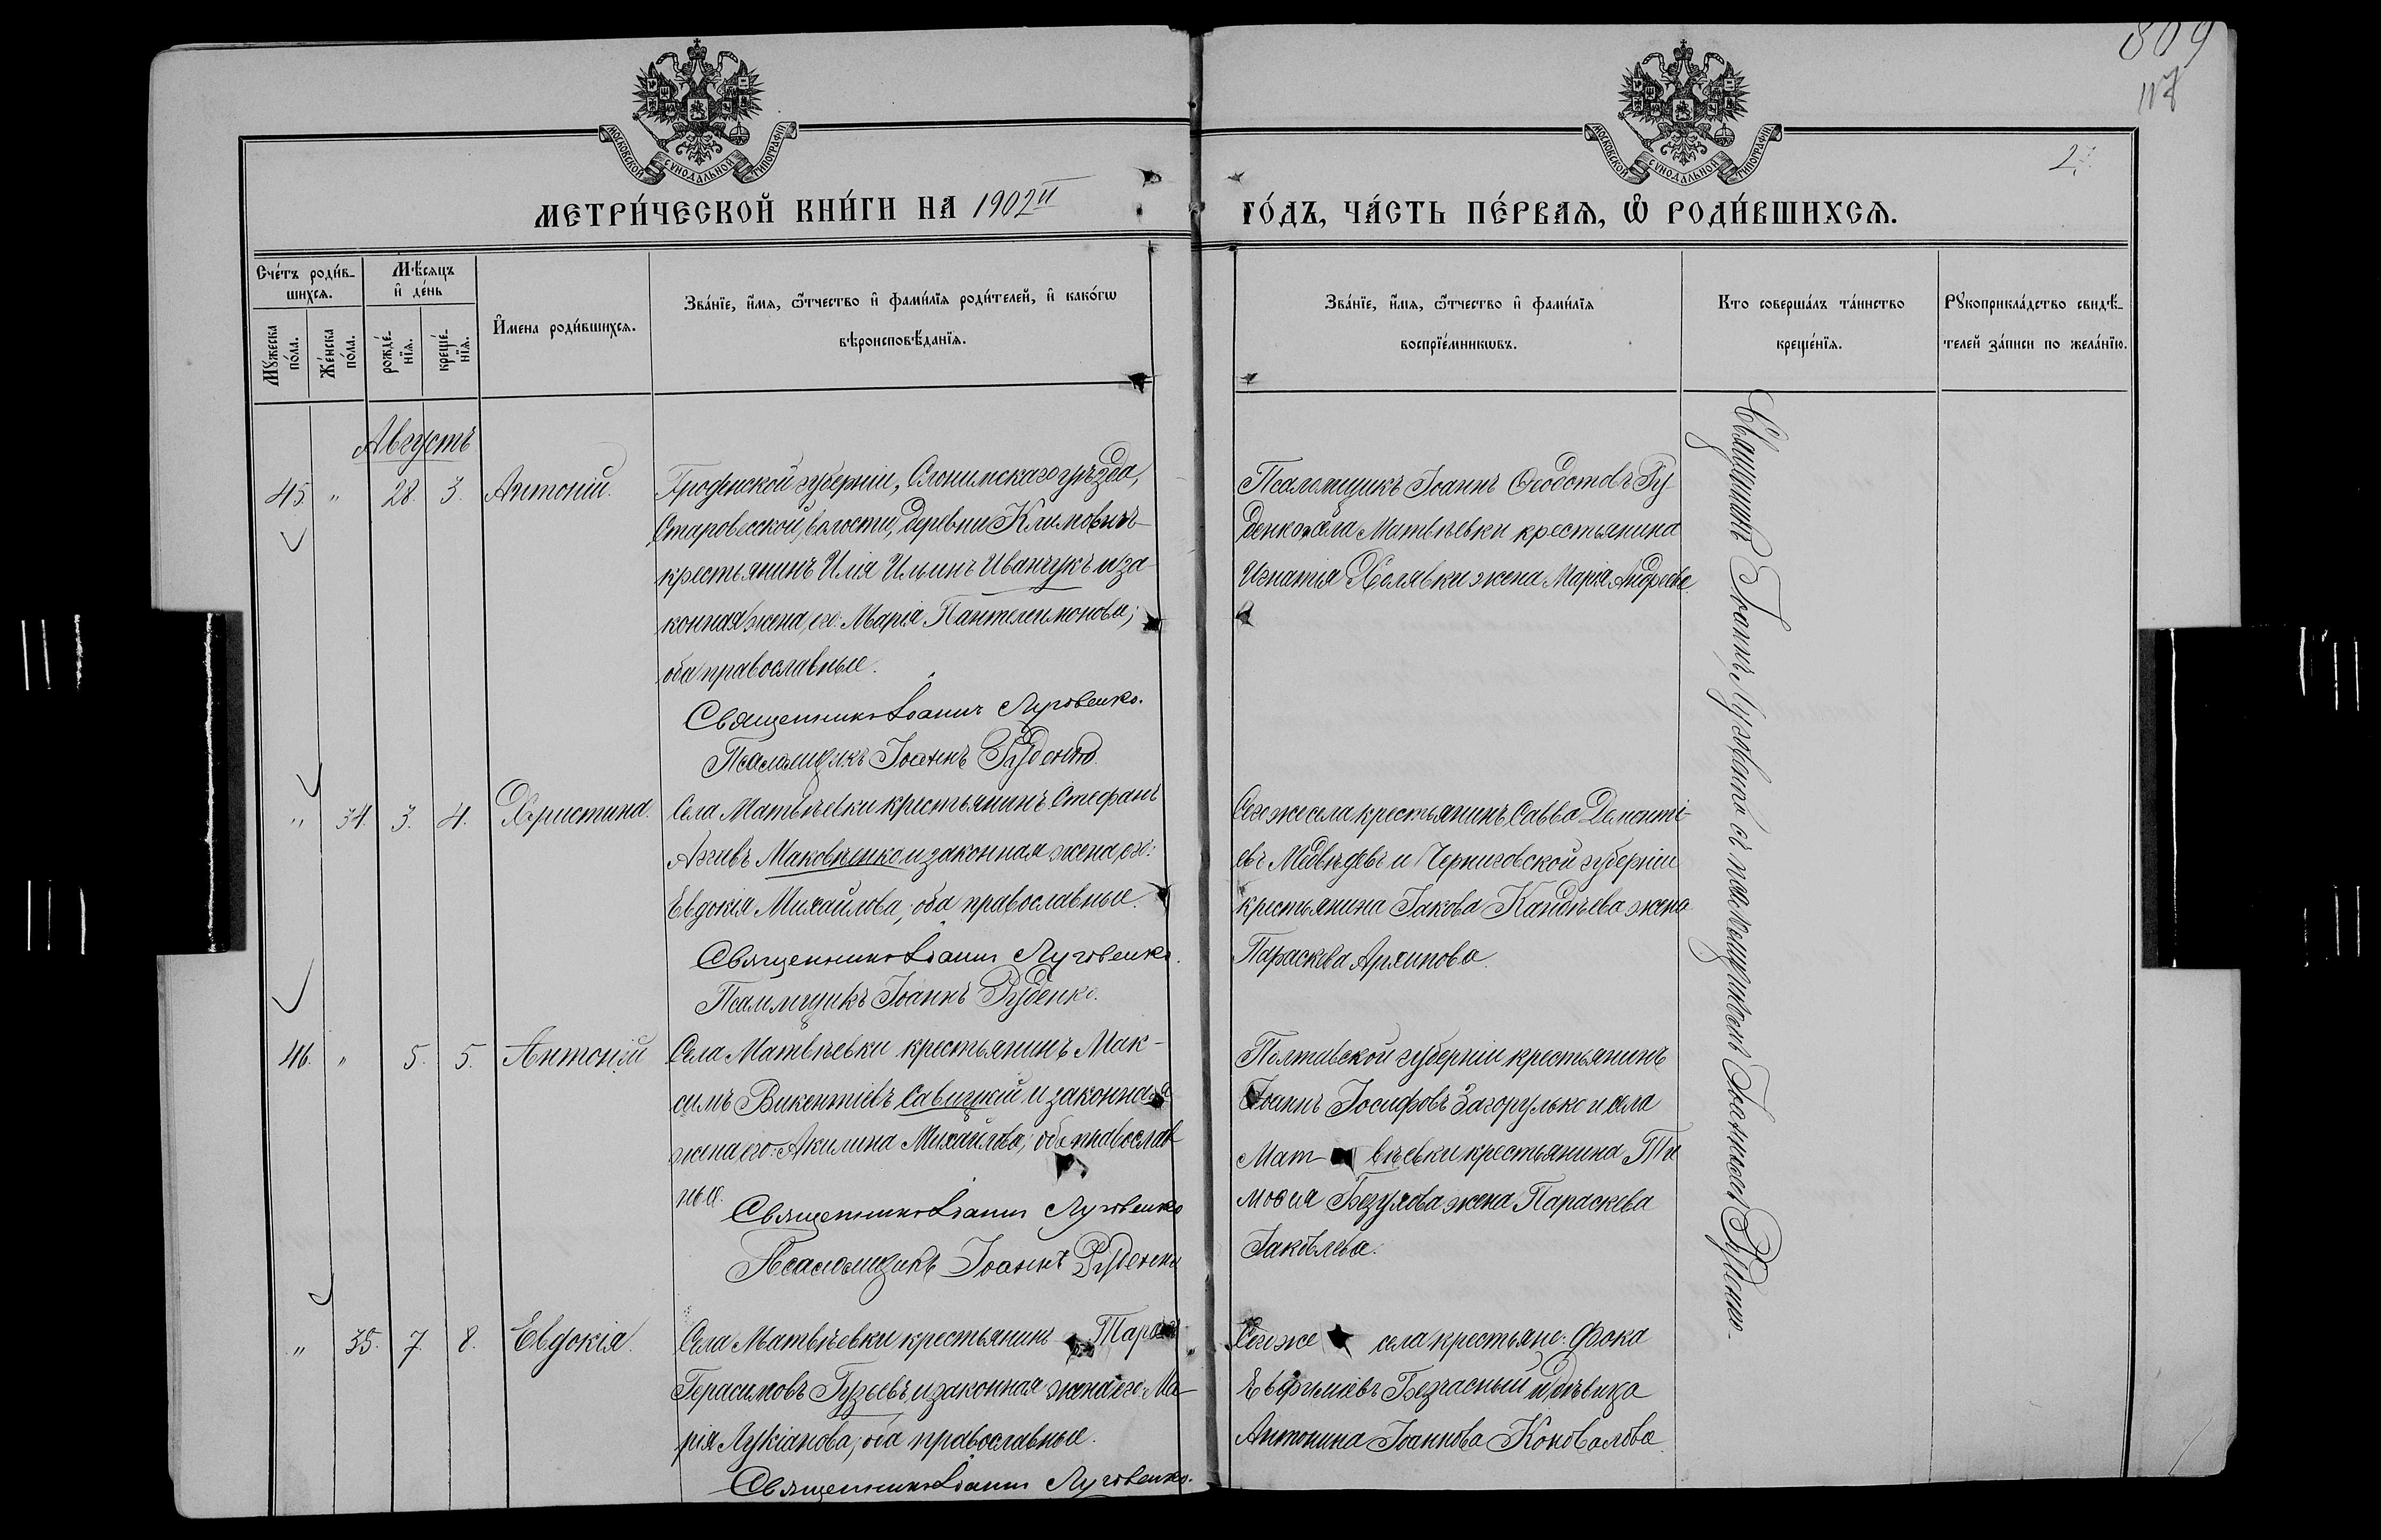 809
117
2
МОСКОВСКОЙ СѴНОДАЛЬНОЙ ТИПОГРАФІИ
МОСКОВСКОЙ СѴНОДАЛЬНОЙ ТИПОГРАФІИ
МЕТРИ́ЧЕСКОЙ КНИ́ГИ НА 1902й
ГО́ДЪ, ЧА́СТЬ ПЕ́РВАѦ, Ѡ҆ РОДИ́ВШИХСѦ.
Сче́тъ роди́в-
шихсѧ.
Мꙋ́жеска по́ла.
Же́нска по́ла.
Мѣ́сѧцъ
и҆ де́нь
рожде́-
нїѧ.
креще́-
нїѧ.
И҆́мена роди́вшихсѧ.
Зва́нїе, и҆́мѧ, ѻ҆́тчество и҆ фами́лїѧ роди́телей, и҆ како́гѡ
вѣроисповѣ́данїѧ.
Зва́нїе, и҆́мѧ, ѻ҆́тчество и҆ фами́лїѧ
воспрїе́мникѡвъ.
Кто соверша́лъ та́инство
креще́нїѧ.
Рꙋкоприкла́дство свидѣ́-
телей за́писи по жела́нїю.
Августъ
45. " 28. 3. Антоній.
Гродненской губерніи, Слонимскаго уѣзда,
Старовесской волости, деревни Климовичъ
крестьянинъ Илія Ильинъ Иванчукъ и за-
конная жена его: Марія Пантелеимонова;
оба православные.
Священникъ Іоаннъ Луговенко.
Псаломщикъ Іоаннъ Руденко.
Псаломщикъ Іоаннъ Ѳеодотовъ Ру-
денко и села Матвѣевки крестьянина
Игнатія Холявки жена Марія Андреева
" 34. 3. 4. Христина.
Села Матвѣевки крестьянинъ Стефанъ
Маковѣенко и законная жена его:
Евдокія Михайлова; оба православные.
Священникъ Іоаннъ Луговенко.
Псаломщикъ Іоаннъ Руденко.
Сего же села крестьянинъ Савва Дементі-
евъ Медвѣдевъ и Черниговской губерніи
крестьянина Іакова жена
Параскева Архипова.
46. " 5. 5. Антоній
Села Матвѣевки крестьянинъ Мак-
симъ Викентіевъ Савицкій и законная
жена его: Акилина Михайлова; оба православ-
ные.
Священникъ Іоаннъ Луговенко
Псаломщикъ Іоаннъ Руденко
Полтавской губерніи крестьянинъ
Іоаннъ Іосифовъ Загорулько и села
Мат вѣевки крестьянина Ти
моѳея Безухова жена Параскева
Іаковлева.
" 35. 7. 8. Евдокія.
Села Матвѣевки крестьянинъ Тарасъ
Герасимовъ Гузьевъ и законная жена его: Ма-
рія Лукіанова; оба православные.
Священникъ Іоаннъ Луговенко.
Сего же села крестьяне: Фока
Евфиміевъ Безчасный и дѣвица
Антонина Іоаннова Коновалова
Священникъ Іоаннъ Луговенко съ псаломщикомъ Іоанномъ Руденко.